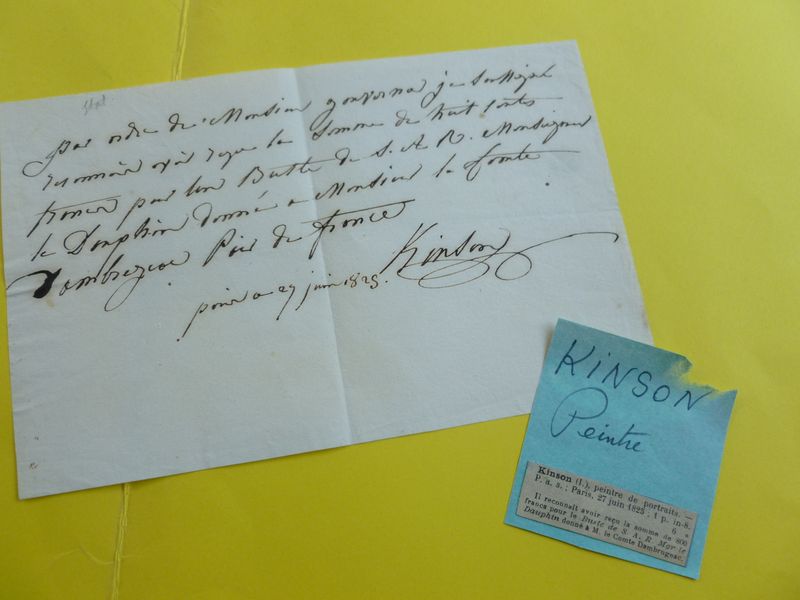 par ordre de Monsieur gouverneur je soussigné
reconnais avoir reçu la Somme de huit cents
francs pour un Buste de S. A. R. Monseigneur
le Dauphin donné a Monsieur le Comte
Dambrugeac Pair de france
paris a 27 juin 1825. Kinson
KINSON
Peintre
Kinson (I.), peintre de portraits. —
P. a. s. ; Paris, 27 juin 1825 ; 1 p. in-8.
6 »
Il reconnaît avoir reçu la somme de 800
francs pour le Buste de S. A. R. Mgr le
Dauphin donné à M. le Comte Dambrugeac.